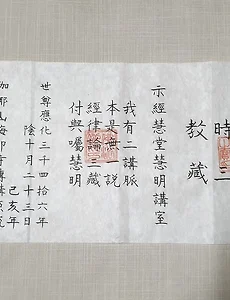 時二
教藏
示經慧堂慧明講室
我有二講脈
本是無說
經律論三藏
付與囑慧明
世尊應化三千四拾六年
陰十月二十三日
己亥年